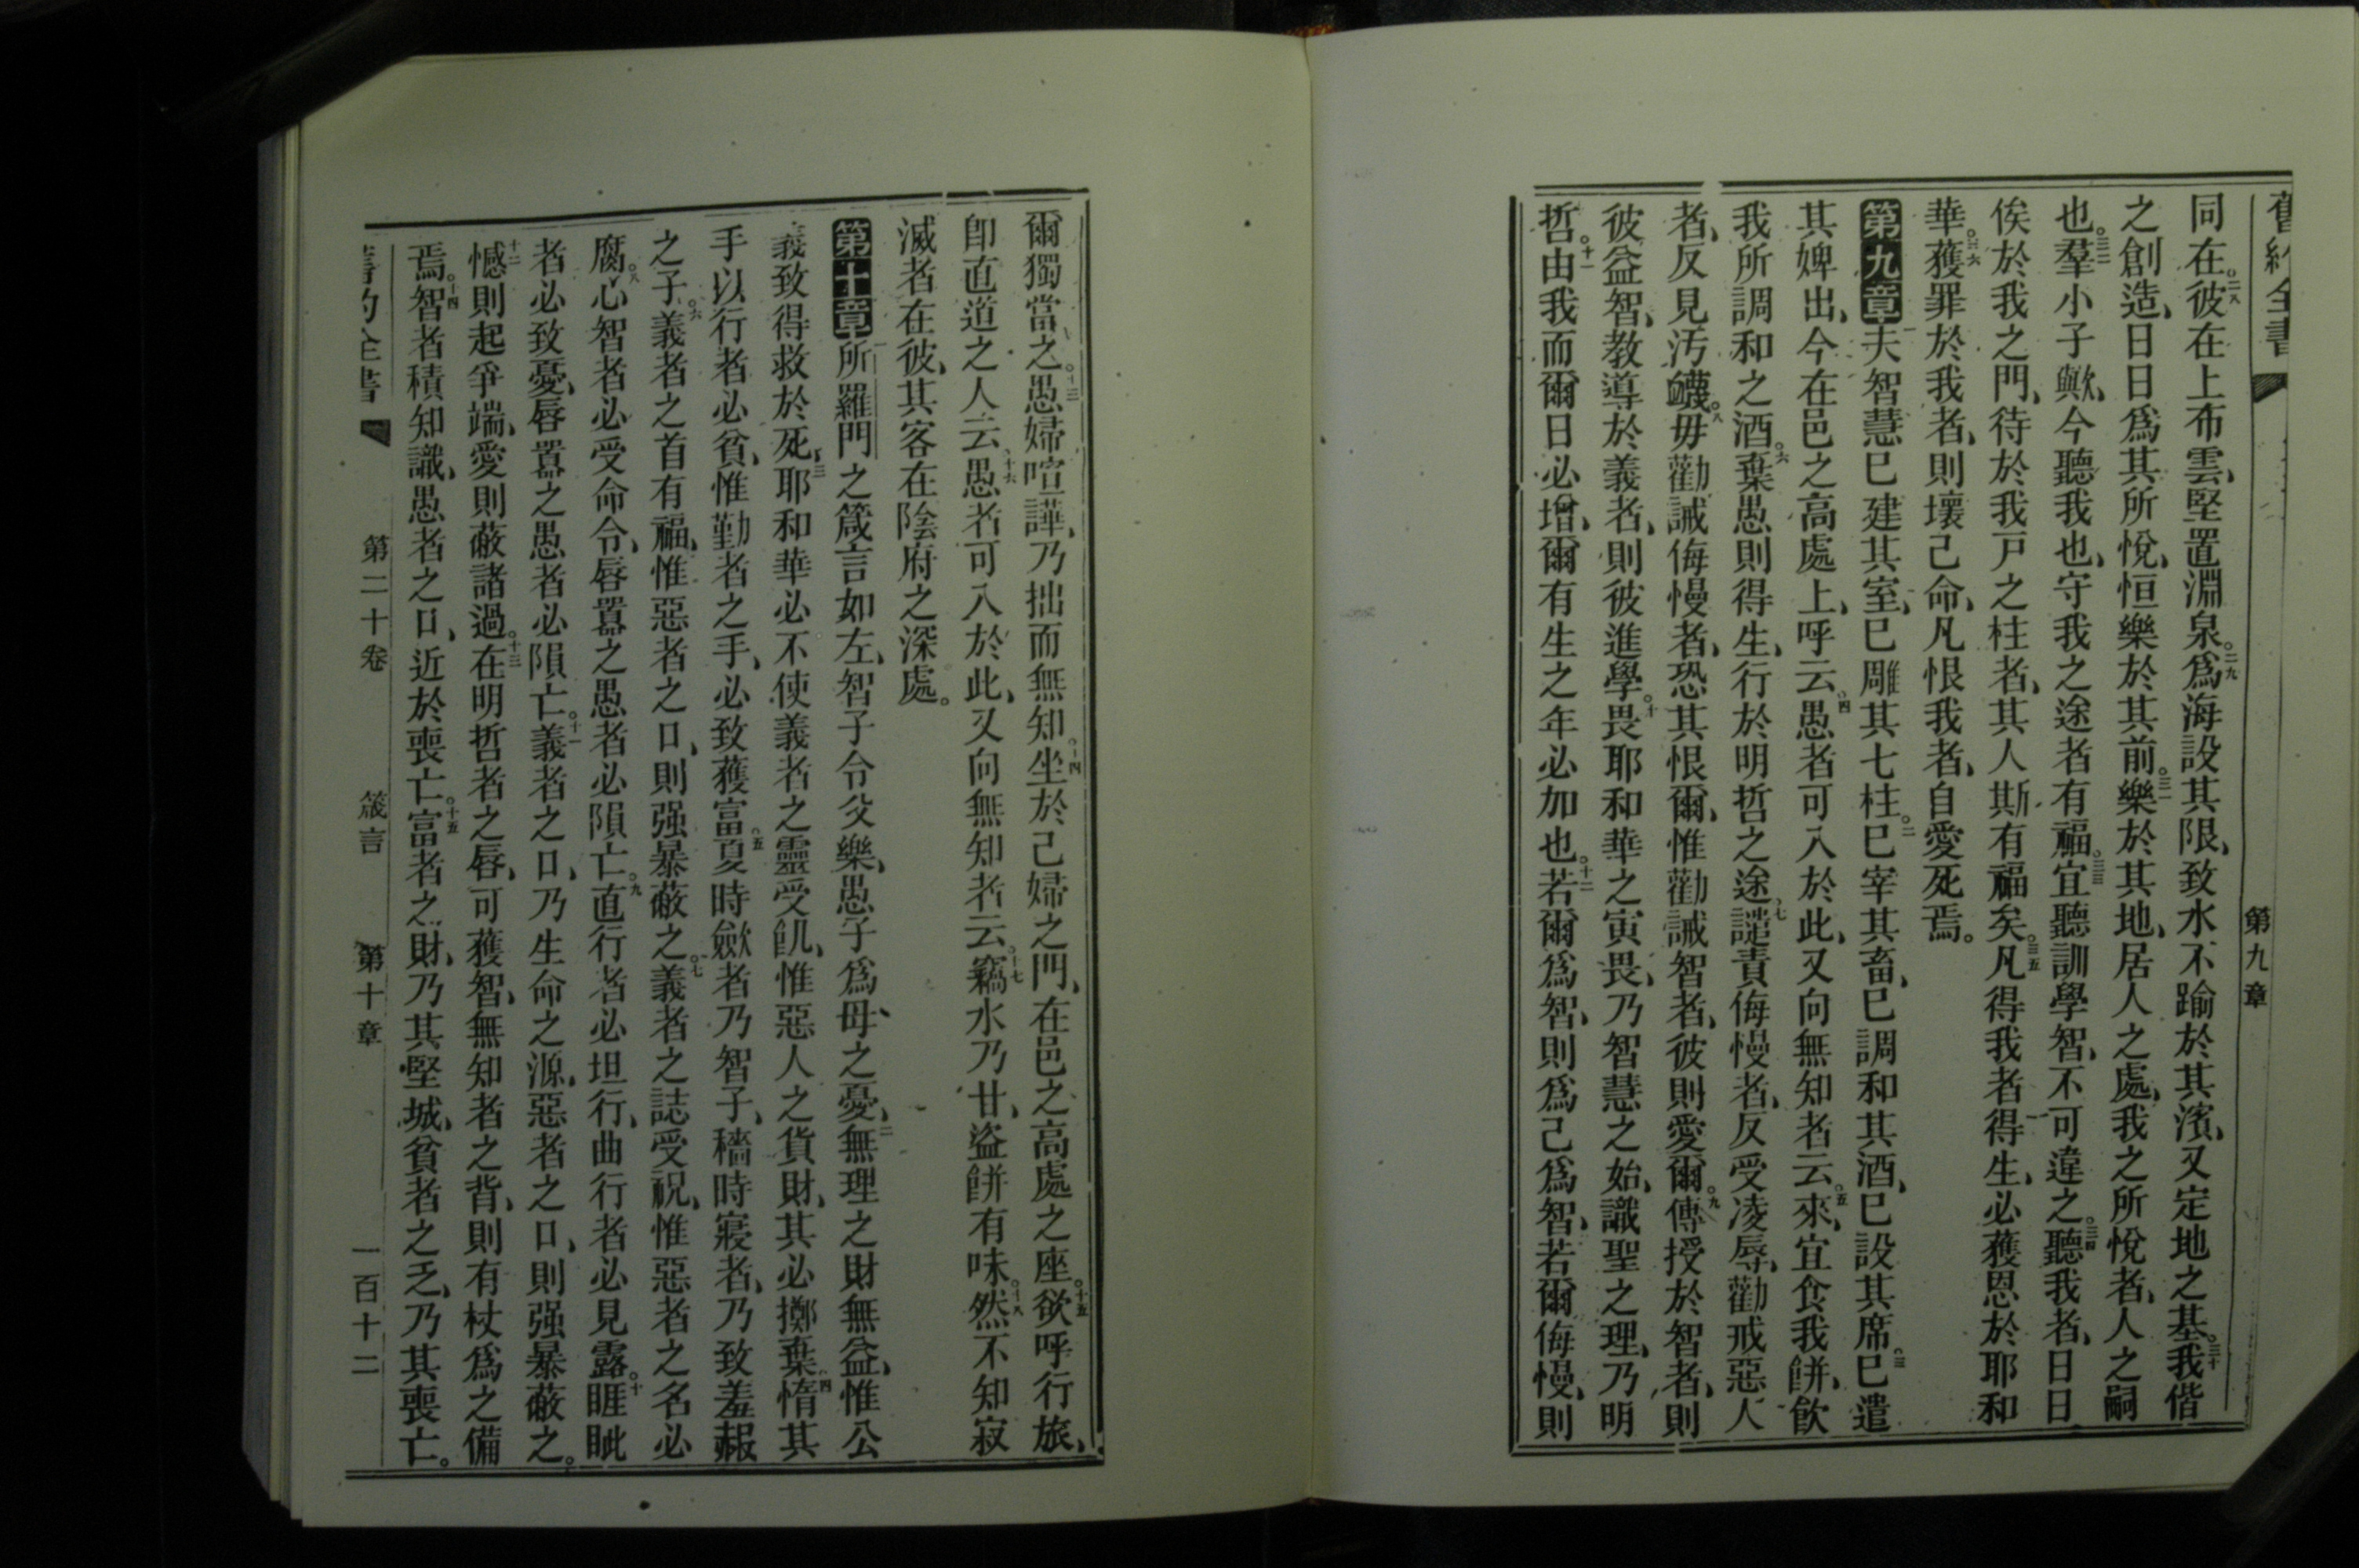 舊約全書
第九章
同在。二八彼在上布雲、堅置淵泉。二九爲海設其限、致水不踰於其濱、又定地之基。三十我偕
之創造、日日爲其所悅、恒樂於其前。三一樂於其地、居人之處、我之所悅者、人之嗣
也。三二羣小子歟、今聽我也、守我之途者有福。三三宜聽訓學智、不可違之。三四聽我者、日日
俟於我之門、待於我戸之柱者、其人斯有福矣。三五凡得我者得生、必獲恩於耶和
華。三六獲罪於我者、則壞己命、凡恨我者、自愛死焉。
第九章一夫智慧已建其室、已雕其七柱。二已宰其畜、已調和其酒、已設其席。三已遣
其婢出、今在邑之高處上、呼云、四愚者可入於此、又向無知者云。五來、宜食我餅、飲
我所調和之酒。六棄愚則得生、行於明哲之途。七譴責侮慢者、反受凌辱、勸戒惡人
者、反見汚衊。八毋勸誡侮慢者、恐其恨爾、惟勸誡智者、彼則愛爾。九傳授於智者、則
彼益智、教導於義者、則彼進學。十畏耶和華之寅畏、乃智慧之始、識聖之理、乃明
哲。十一由我而爾日必增、爾有生之年必加也。十二若爾爲智、則爲己爲智、若爾侮慢、則
爾獨當之。十三愚婦喧譁、乃拙而無知。十四坐於己婦之門、在邑之高處之座。十五欲呼行旅、
卽直道之人云、十六愚者可入於此、又向無知者云。十七竊水乃甘、盜餅有味。十八然不知寂
滅者在彼、其客在陰府之深處。
第十章一所羅門之箴言如左、智子令父樂、愚子爲母之憂、二無理之財無益、惟公
義致得救於死、三耶和華必不使義者之靈受飢、惟惡人之貨財、其必擲棄。四惰其
手以行者必貧、惟勤者之手、必致獲富。五夏時斂者乃智子、穡時寢者、乃致羞赧
之子。六義者之首有福、惟惡者之口、則强暴蔽之。七義者之誌受祝、惟惡者之名必
腐。八心智者必受命令、唇嚚之愚者必隕亡。九直行者必坦行、曲行者必見露。十睚眦
者必致憂、唇嚚之愚者必隕亡。十一義者之口、乃生命之源、惡者之口、則强暴蔽之。
十二憾則起爭端、愛則蔽諸過。十三在明哲者之唇、可獲智、無知者之背、則有杖爲之備
焉。十四智者積知識、愚者之口、近於喪亡。十五富者之財、乃其堅城、貧者之乏、乃其喪亡。
舊約全書 第二十卷 箴言 第十章 一百十二